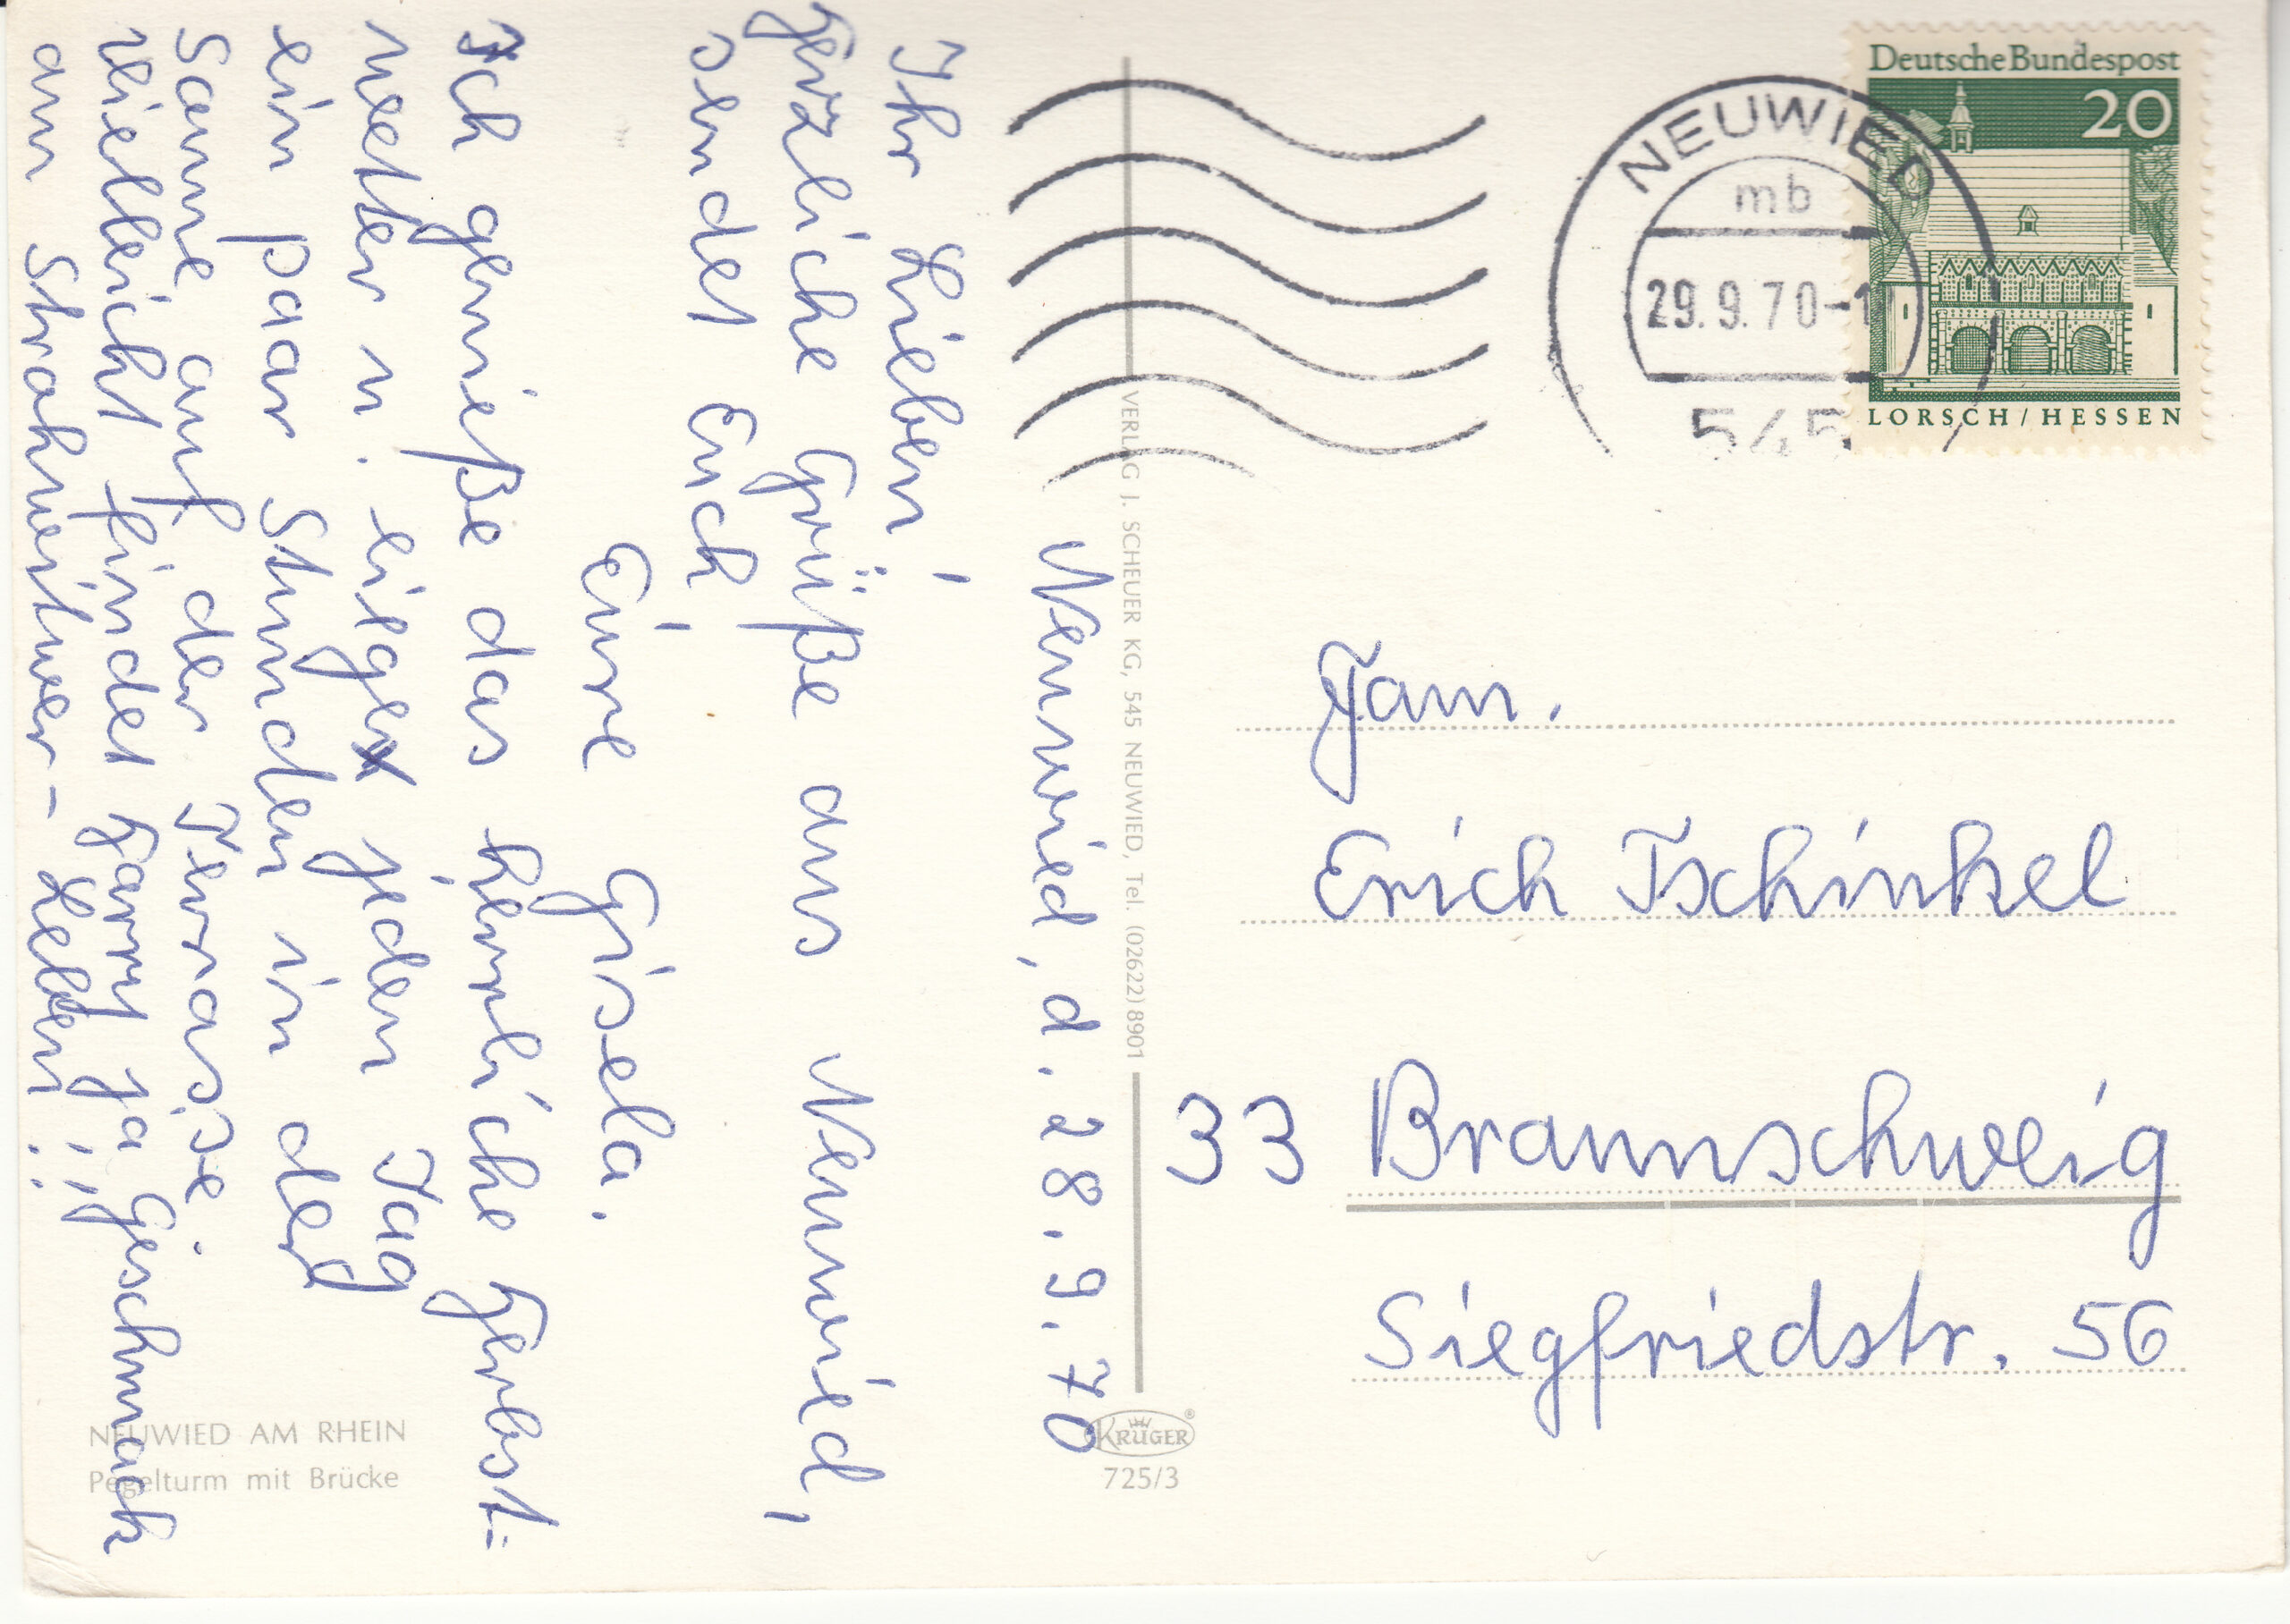 Neuwied, d. 28.9.70
Ihr Lieben!
Herzliche Grüße aus Neuwied,
sendet Euch
Eure Gisela.
Ich genieße das herrliche Herbst-
wetter u. jeden Tag
ein paar Stunden in der
Sonne auf der Terrasse.
Vielleicht findet Harry ja Geschmack
am Strohwitwer-Leben!!
Deutsche Bundespost
20
LORSCH/HESSEN
NEUWIED
mb
29.9.70-1
545
Fam.
Erich Tschinkel
33 Braunschweig
Siegfriedstr. 56
VERLAG J. SCHEUER KG, 545 NEUWIED, Tel. (02622) 8901
NEUWIED AM RHEIN
Pegelturm mit Brücke
KRÜGER®
725/3